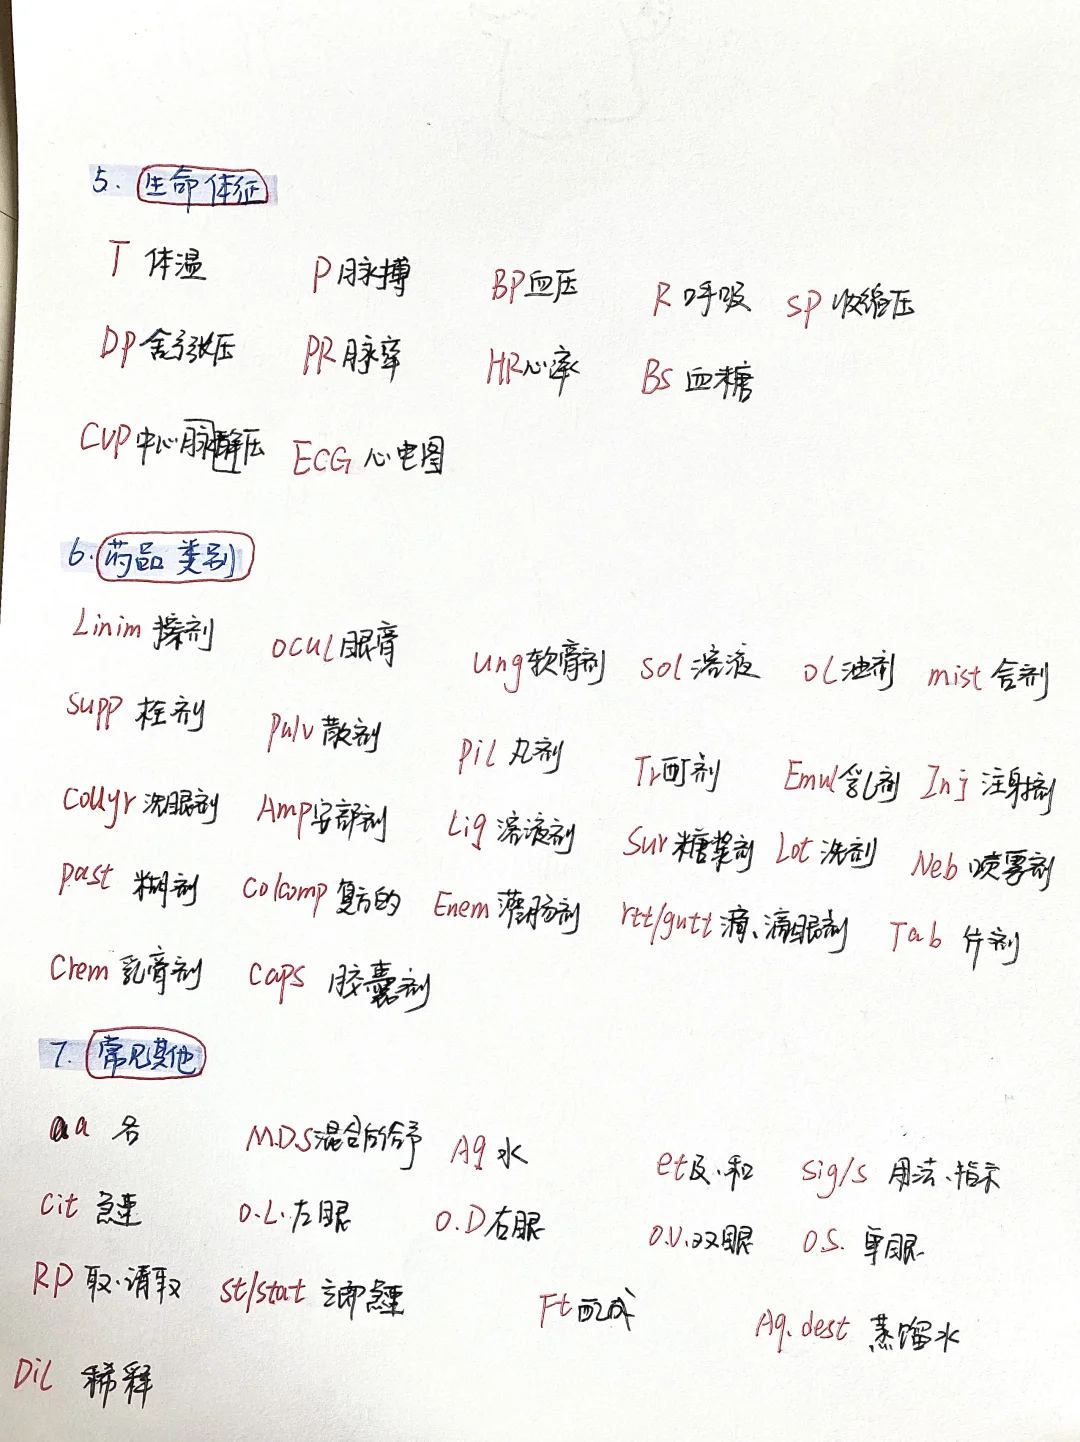 5. 生命体征
T 体温 P 脉搏 BP 血压 R 呼吸 SP 收缩压
DP 舒张压 PR 脉率 HR 心率 BS 血糖
CVP 中心脉静压 ECG 心电图
6. 药品类别
Linim 搽剂 ocul 眼膏 ung 软膏剂 sol 溶液 ol 油剂 mist 合剂
Supp 栓剂 pulv 散剂 pil 丸剂 Tr 酊剂 Emul 乳剂 Inj 注射剂
Collyr 洗眼剂 Amp 安部剂 Lig 溶液剂 Sur 糖浆剂 Lot 洗剂 Neb 喷雾剂
past 糊剂 Colcomp 复方的 Enem 灌肠剂 rtt/gutt 滴、滴眼剂 Tab 片剂
Crem 乳膏剂 caps 胶囊剂
7. 常见其他
aa 各 M.D.S 混合后给予 Aq 水 et 及、和 sig/s 用法、指示
Cit 急速 O.L. 左眼 O.D 右眼 O.U. 双眼 O.S. 单眼
RP 取、请取 st/stat 立即急速 Ft 配成 Aq.dest 蒸馏水
Dil 稀释